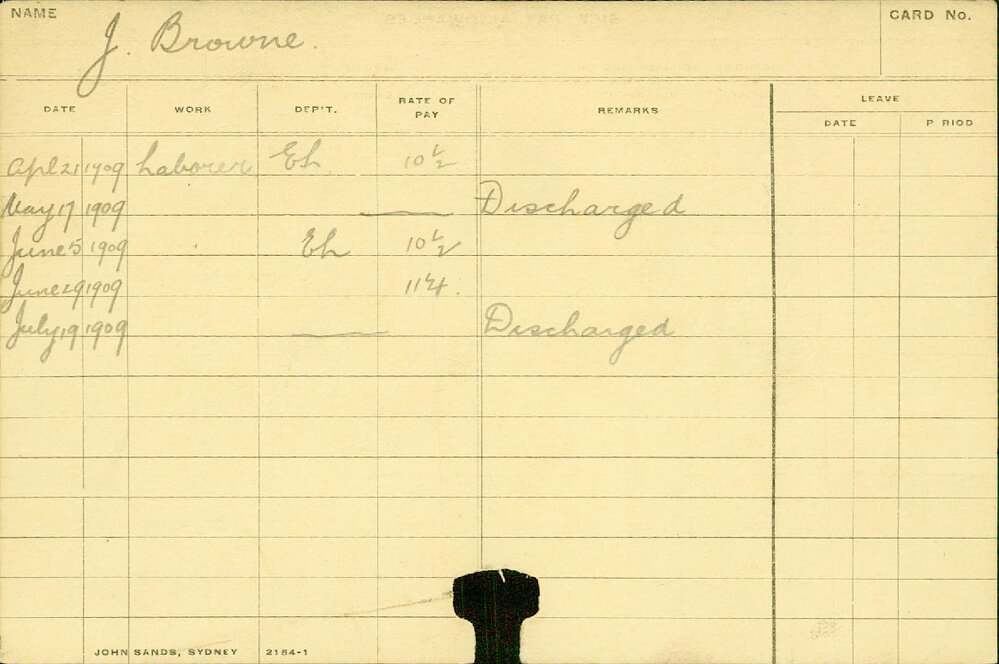 NAME J. Browne. CARD No.
DATE WORK DEP'T. RATE OF PAY REMARKS LEAVE
DATE P RIOD
Apl 21 1909 Laborer Eh 10 1/2
May 17 1909 Discharged
June 5 1909 Eh 10 1/2
June 29 1909 11 1/4.
July 19 1909 Discharged
JOHN SANDS, SYDNEY 2154-1